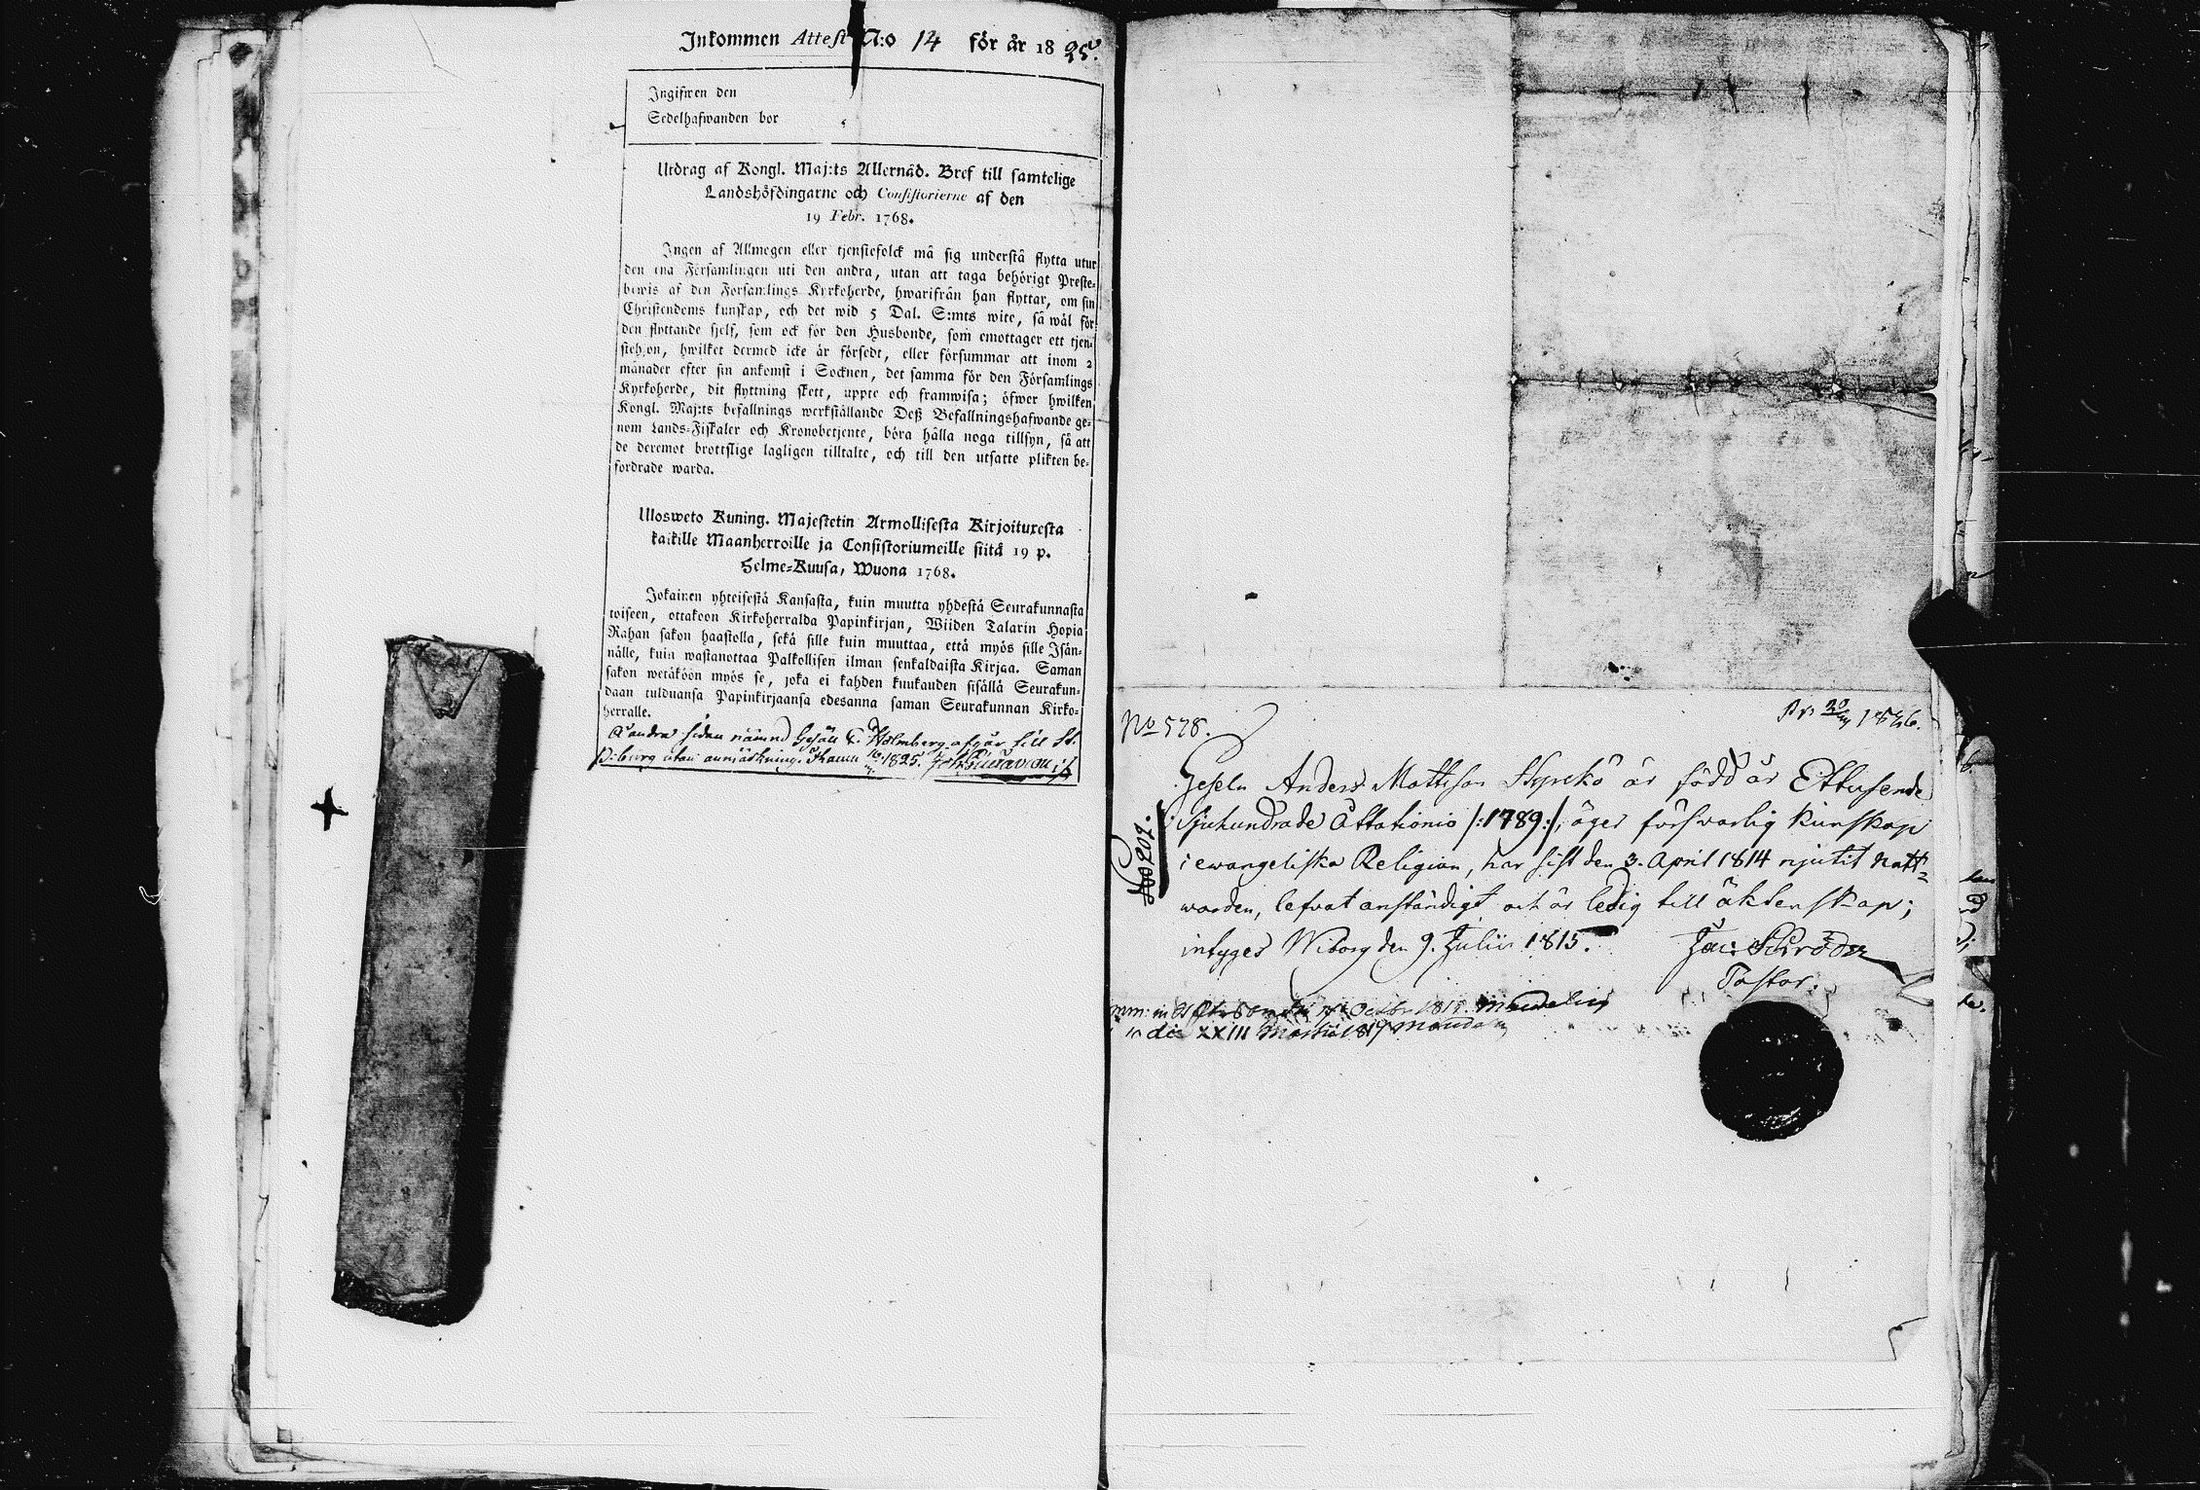 Inkommen Attest N:o 14 för år 1825.
Ingifwen den
Sedelhafwanden bor
Utdrag af Kongl. Maj:ts Allernåd. Bref till samtelige
Landshöfdingarne och Consistorierne af den
19 Febr. 1768.
Ingen af Allmogen eller tjenstefolck må sig understå flytta utur
den ena Församlingen uti den andra, utan att taga behörigt Preste-
bewis af den Forsamlings Kyrkoherde, hwarifrån han flyttar, om sin
Christendoms kunskap, och det wid 5 Dal. S:mts wite, så wäl för
den flyttande sjelf, som ock för den Husbonde, som emottager ett tjen-
stehjon, hwilket dermed icke är försedt, eller försummar att inom 2
månader efter sin ankomst i Socknen, det samma för den Församlings
Kyrkoherde, dit flyttning skett, uppte och framwisa; öfwer hwilken
Kongl. Maj:ts befallnings werkställande Deß Befallningshafwande ge-
nom Lands-Fiskaler och Kronobetjente, böra hålla noga tillsyn, så att
de deremot brottslige lagligen tilltalte, och till den utsatte plikten be-
fordrade warda.
Ulosweto Kuning. Majestetin Armollisesta Kirjoituxesta
kaikille Maanherroille ja Consistoriumeille siitä 19 p.
Helme-Kuusa, Wuona 1768.
Jokainen yhteisestä Kansasta, kuin muutta yhdestä Seurakunnasta
toiseen, ottakoon Kirkoherralda Papinkirjan, Wiiden Talarin Hopia
Rahan sakon haastolla, sekä sille kuin muuttaa, että myös sille Isän-
nälle, kuin wastanottaa Palkollisen ilman senkaldaista Kirjaa. Saman
sakon wetäköön myös se, joka ei kahden kuukauden sisällä Seurakun-
daan tulduansa Papinkirjaansa edesanna saman Seurakunnan Kirko-
herralle.
å andra sidan nämnd Gesäll C. Holmberg afgår till St.
P:burg utan anmärkning. 1825.
No 578.
1846.
No 202.
Geseln Anders Mattsson är född år Ettusende
sjuhundrade Åttationio /:1789:/, äger försvarlig kunskap
i ewangeliska Religion, har sist den 3. April 1814 njutit Natt-
warden, lefvat anständigt och är ledig till äktenskap;
intyges Wiborg den 9. Julii 1815. Jac: Schröder
Pastor.
die XXIII Martii 1817